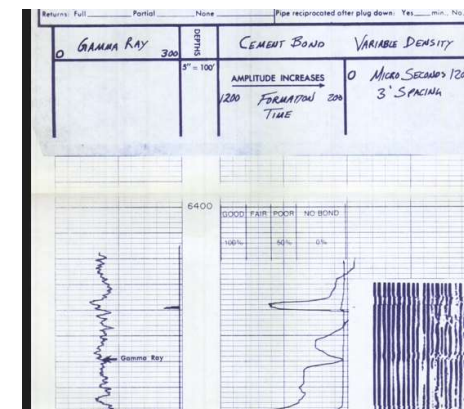 Returns: Full Partial None Pipe reciprocated after plug down: Yes min. No.
0 GAMMA RAY 300
DEPTHS
CEMENT BOND
VARIABLE DENSITY
5" = 100'
AMPLITUDE INCREASES
1200 FORMATION 200
TIME
0 MICRO SECONDS 120
3' SPACING
6400
GOOD FAIR POOR NO BOND
100% 50% 0%
Gamma Ray